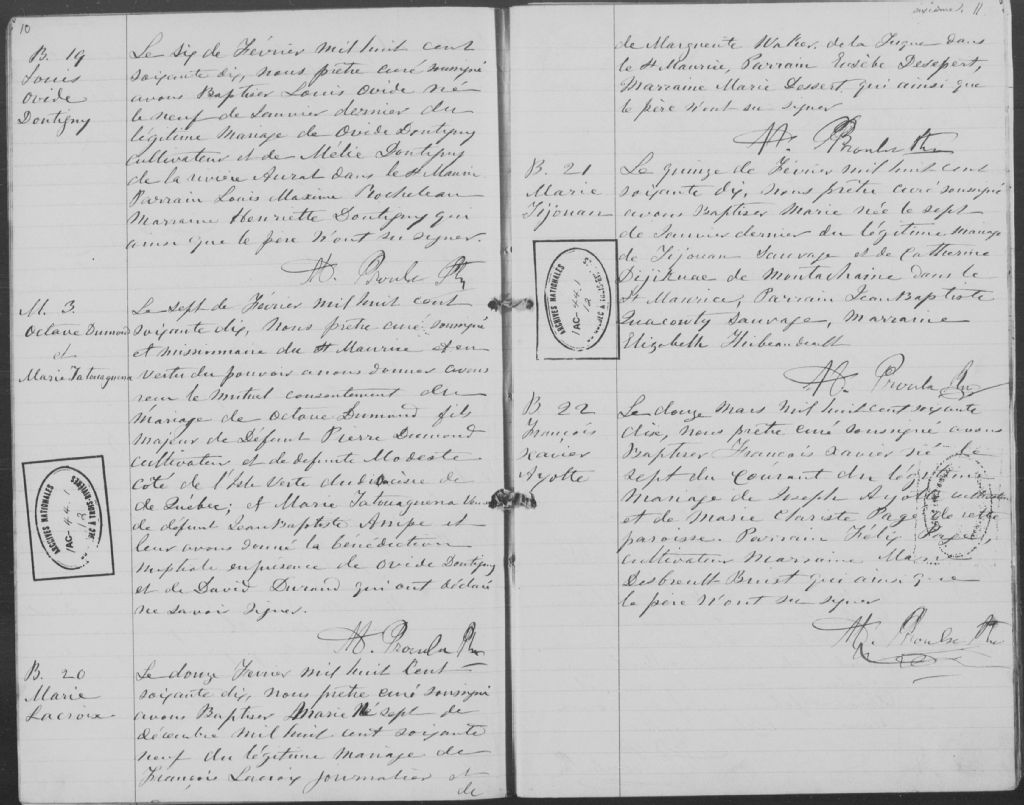 10
B. 19
Louis
Ovide
Dontigny
Le six de Février mil huit cent
soixante dix, nous prêtre curé sousigné
avons Baptiser Louis Ovide né
le neuf de Janvier dernier du
légitime mariage de Ovide Dontigny
cultivateur et de Mélie Dontigny
de la rivière Aurat dans le St Maurice
Parrain Louis Maxime Rocheleau
Marraine Henriette Dontigny qui
ainsi que le père n'ont su signer.
Proulx Ptre
M. 3.
Octave Dumond
et
Marie Tatouaguena
Le sept de Février mil huit cent
soixante dix, nous prêtre curé sousigné
et missionnaire du St Maurice et en
vertu du pouvoir a nous donner avons
recu le mutuel consentement du
mariage de Octave Dumond fils
majeur de Défunt Pierre Dumond
cultivateur et de defunte Modeste
Coté de l'Isle Verte du diocèse de
de Québec; et Marie Tatouaguena
de defunt Jean Baptiste Anipe et
leur avons donné la bénédiction
nuptiale en presence de Ovide Dontigny
et de David Durand qui ont déclaré
ne savoir signer.
Proulx Ptre
ARCHIVES NATIONALES
IAC-44.1
12
QUÉBEC À TROIS-RIVIÈRES
B. 20
Marie
Lacroix
Le douze Fevrier mil huit Cent
soixante dix, nous prêtre curé sousigné
avons Baptiser Marie Né sept de
décembre mil huit cent soixante
neuf du légitime mariage de
François Lacroix journalier et
de
11
de Marguerite Walker. de la Tuque dans
le St Maurice, Parrain Eusèbe Desepert,
Marraine Marie Dessert, qui ainsi que
le père n'ont su signer
Proulx Ptre
B. 21
Marie
Tijouan
Le quinze de Février mil huit cent
soixante dix, nous prêtre curé sousigné
avons Baptiser Marie née le sept
de Janvier dernier du légitime mariage
de Tijouan Sauvage et de Catherine
de Montachaine dans le
St Maurice, Parrain Jean Baptiste
Quacouty Sauvage, Marraine
Elizabeth Thibeaudeault
Proulx Ptre
ARCHIVES NATIONALES
IAC-44.1
12
QUÉBEC À TROIS-RIVIÈRES
B. 22
François
Xavier
Ayotte
Le douze Mars mil huit cent soixante
dix, nous prêtre curé sousigné avons
Baptiser François Xavier né le
sept du courant du légitime
mariage de Joseph Ayotte cultivateur
et de Marie Clariste Pagé de cette
paroisse. Parrain Félix Pagé
cultivateur Marraine Marie
qui ainsi que
le père n'ont su signer
Proulx Ptre